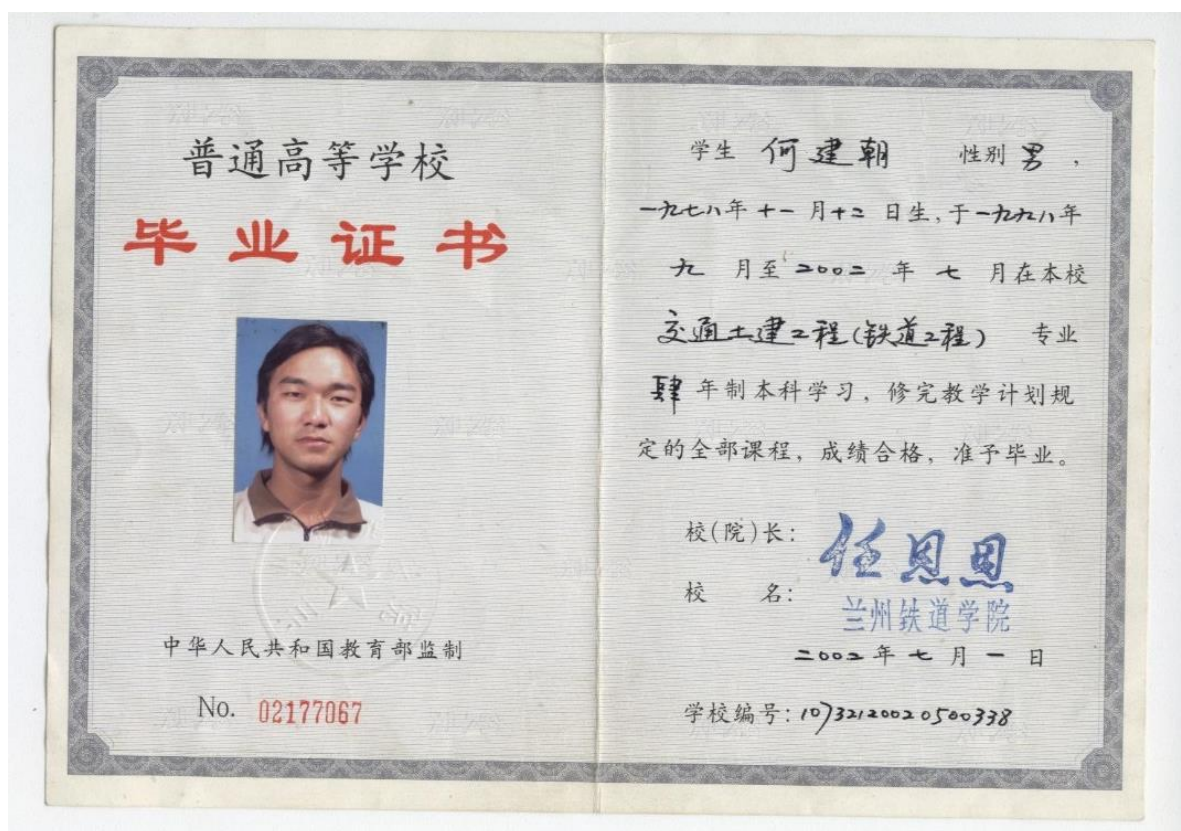 普通高等学校
毕业证书
中华人民共和国教育部监制
No. 02177067
学生 何建朝 性别 男，
一九七八年 十一 月 十二 日生，于 一九九八年
九 月至 二００二 年 七 月在本校
交通土建工程(铁道工程) 专业
肆 年制本科学习，修完教学计划规
定的全部课程，成绩合格，准予毕业。
校(院)长：任恩恩
校 名：兰州铁道学院
二００二 年 七 月 一 日
学校编号：10732120020500338